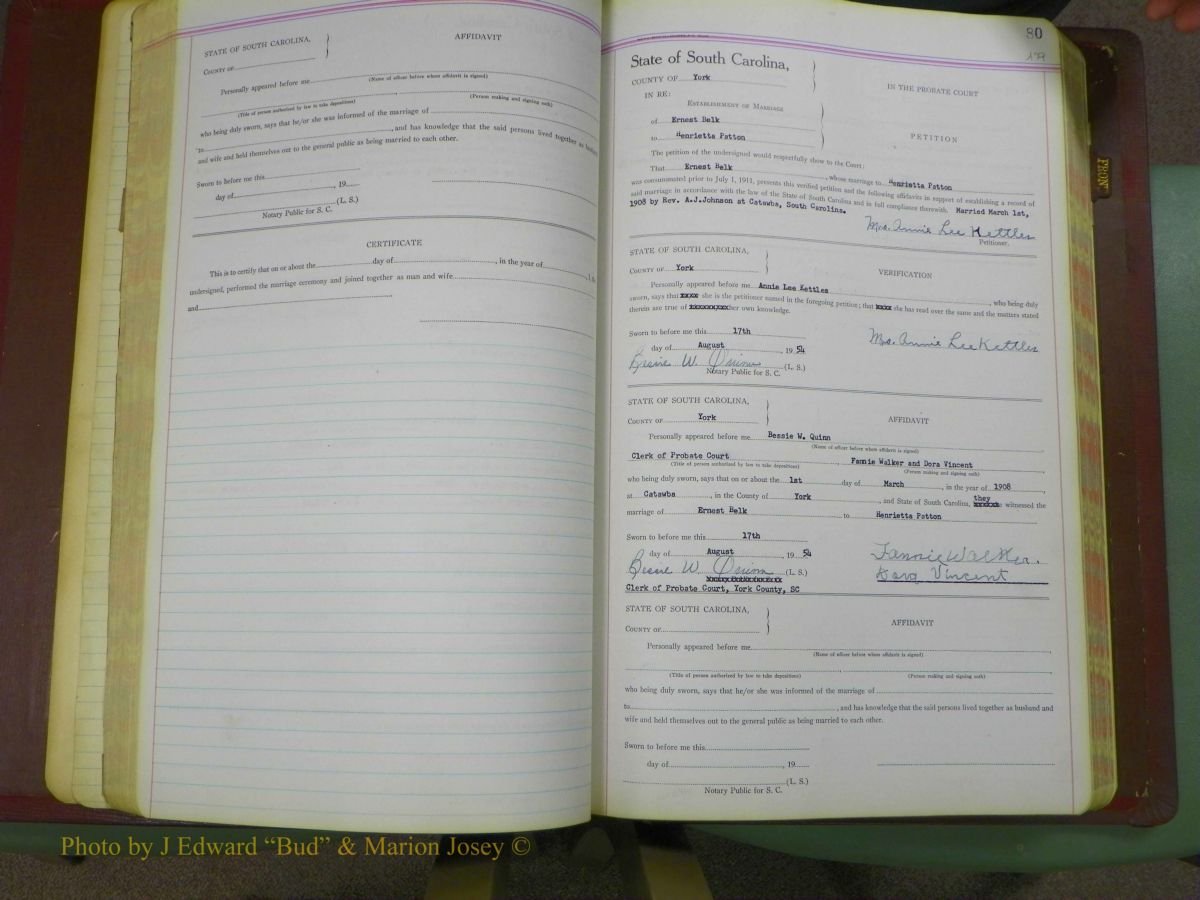 STATE OF SOUTH CAROLINA,
COUNTY OF
AFFIDAVIT
Personally appeared before me
(Name of officer before whom affidavit is signed)
(Title of person authorized by law to take depositions) (Person making and signing oath)
who being duly sworn, says that he/or she was informed of the marriage of
to , and has knowledge that the said persons lived together as husband
and wife and held themselves out to the general public as being married to each other.
Sworn to before me this
day of , 19
(L. S.)
Notary Public for S. C.
CERTIFICATE
This is to certify that on or about the day of , in the year of , I, the
undersigned, performed the marriage ceremony and joined together as man and wife
and
80
179
State of South Carolina,
COUNTY OF York
IN RE:
IN THE PROBATE COURT
ESTABLISHMENT OF MARRIAGE
of Ernest Belk
to Henrietta Patton
PETITION
The petition of the undersigned would respectfully show to the Court:
That Ernest Belk , whose marriage to Henrietta Patton
was consummated prior to July 1, 1911, presents this verified petition and the following affidavits in support of establishing a record of
said marriage in accordance with the law of the State of South Carolina and in full compliance therewith. Married March 1st,
1908 by Rev. A.J.Johnson at Catawba, South Carolina.
Mrs. Annie Lee Kettles
Petitioner.
STATE OF SOUTH CAROLINA,
COUNTY OF York
VERIFICATION
Personally appeared before me Annie Lee Kettles , who being duly
sworn, says that xxxx she is the petitioner named in the foregoing petition; that xxxx she has read over the same and the matters stated
therein are true of xxxxxxxxx her own knowledge.
Sworn to before me this 17th
day of August , 19 54
Mrs. Annie Lee Kettles
Bessie W. Quinn (L. S.)
Notary Public for S. C.
STATE OF SOUTH CAROLINA,
COUNTY OF York
AFFIDAVIT
Personally appeared before me Bessie W. Quinn
(Name of officer before whom affidavit is signed)
Clerk of Probate Court , Fannie Walker and Dora Vincent
(Title of person authorized by law to take depositions) (Person making and signing oath)
who being duly sworn, says that on or about the 1st day of March , in the year of 1908 ,
at Catawba , in the County of York , and State of South Carolina, they xxxxxx witnessed the
marriage of Ernest Belk to Henrietta Patton
Sworn to before me this 17th
day of August , 19 54
Fannie Walker.
Bessie W. Quinn (L. S.)
Dora Vincent
Clerk of Probate Court, York County, SC
STATE OF SOUTH CAROLINA,
COUNTY OF
AFFIDAVIT
Personally appeared before me
(Name of officer before whom affidavit is signed)
(Title of person authorized by law to take depositions) (Person making and signing oath)
who being duly sworn, says that he/or she was informed of the marriage of
to , and has knowledge that the said persons lived together as husband and
wife and held themselves out to the general public as being married to each other.
Sworn to before me this
day of , 19
(L. S.)
Notary Public for S. C.
FRON
Photo by J Edward “Bud” & Marion Josey ©